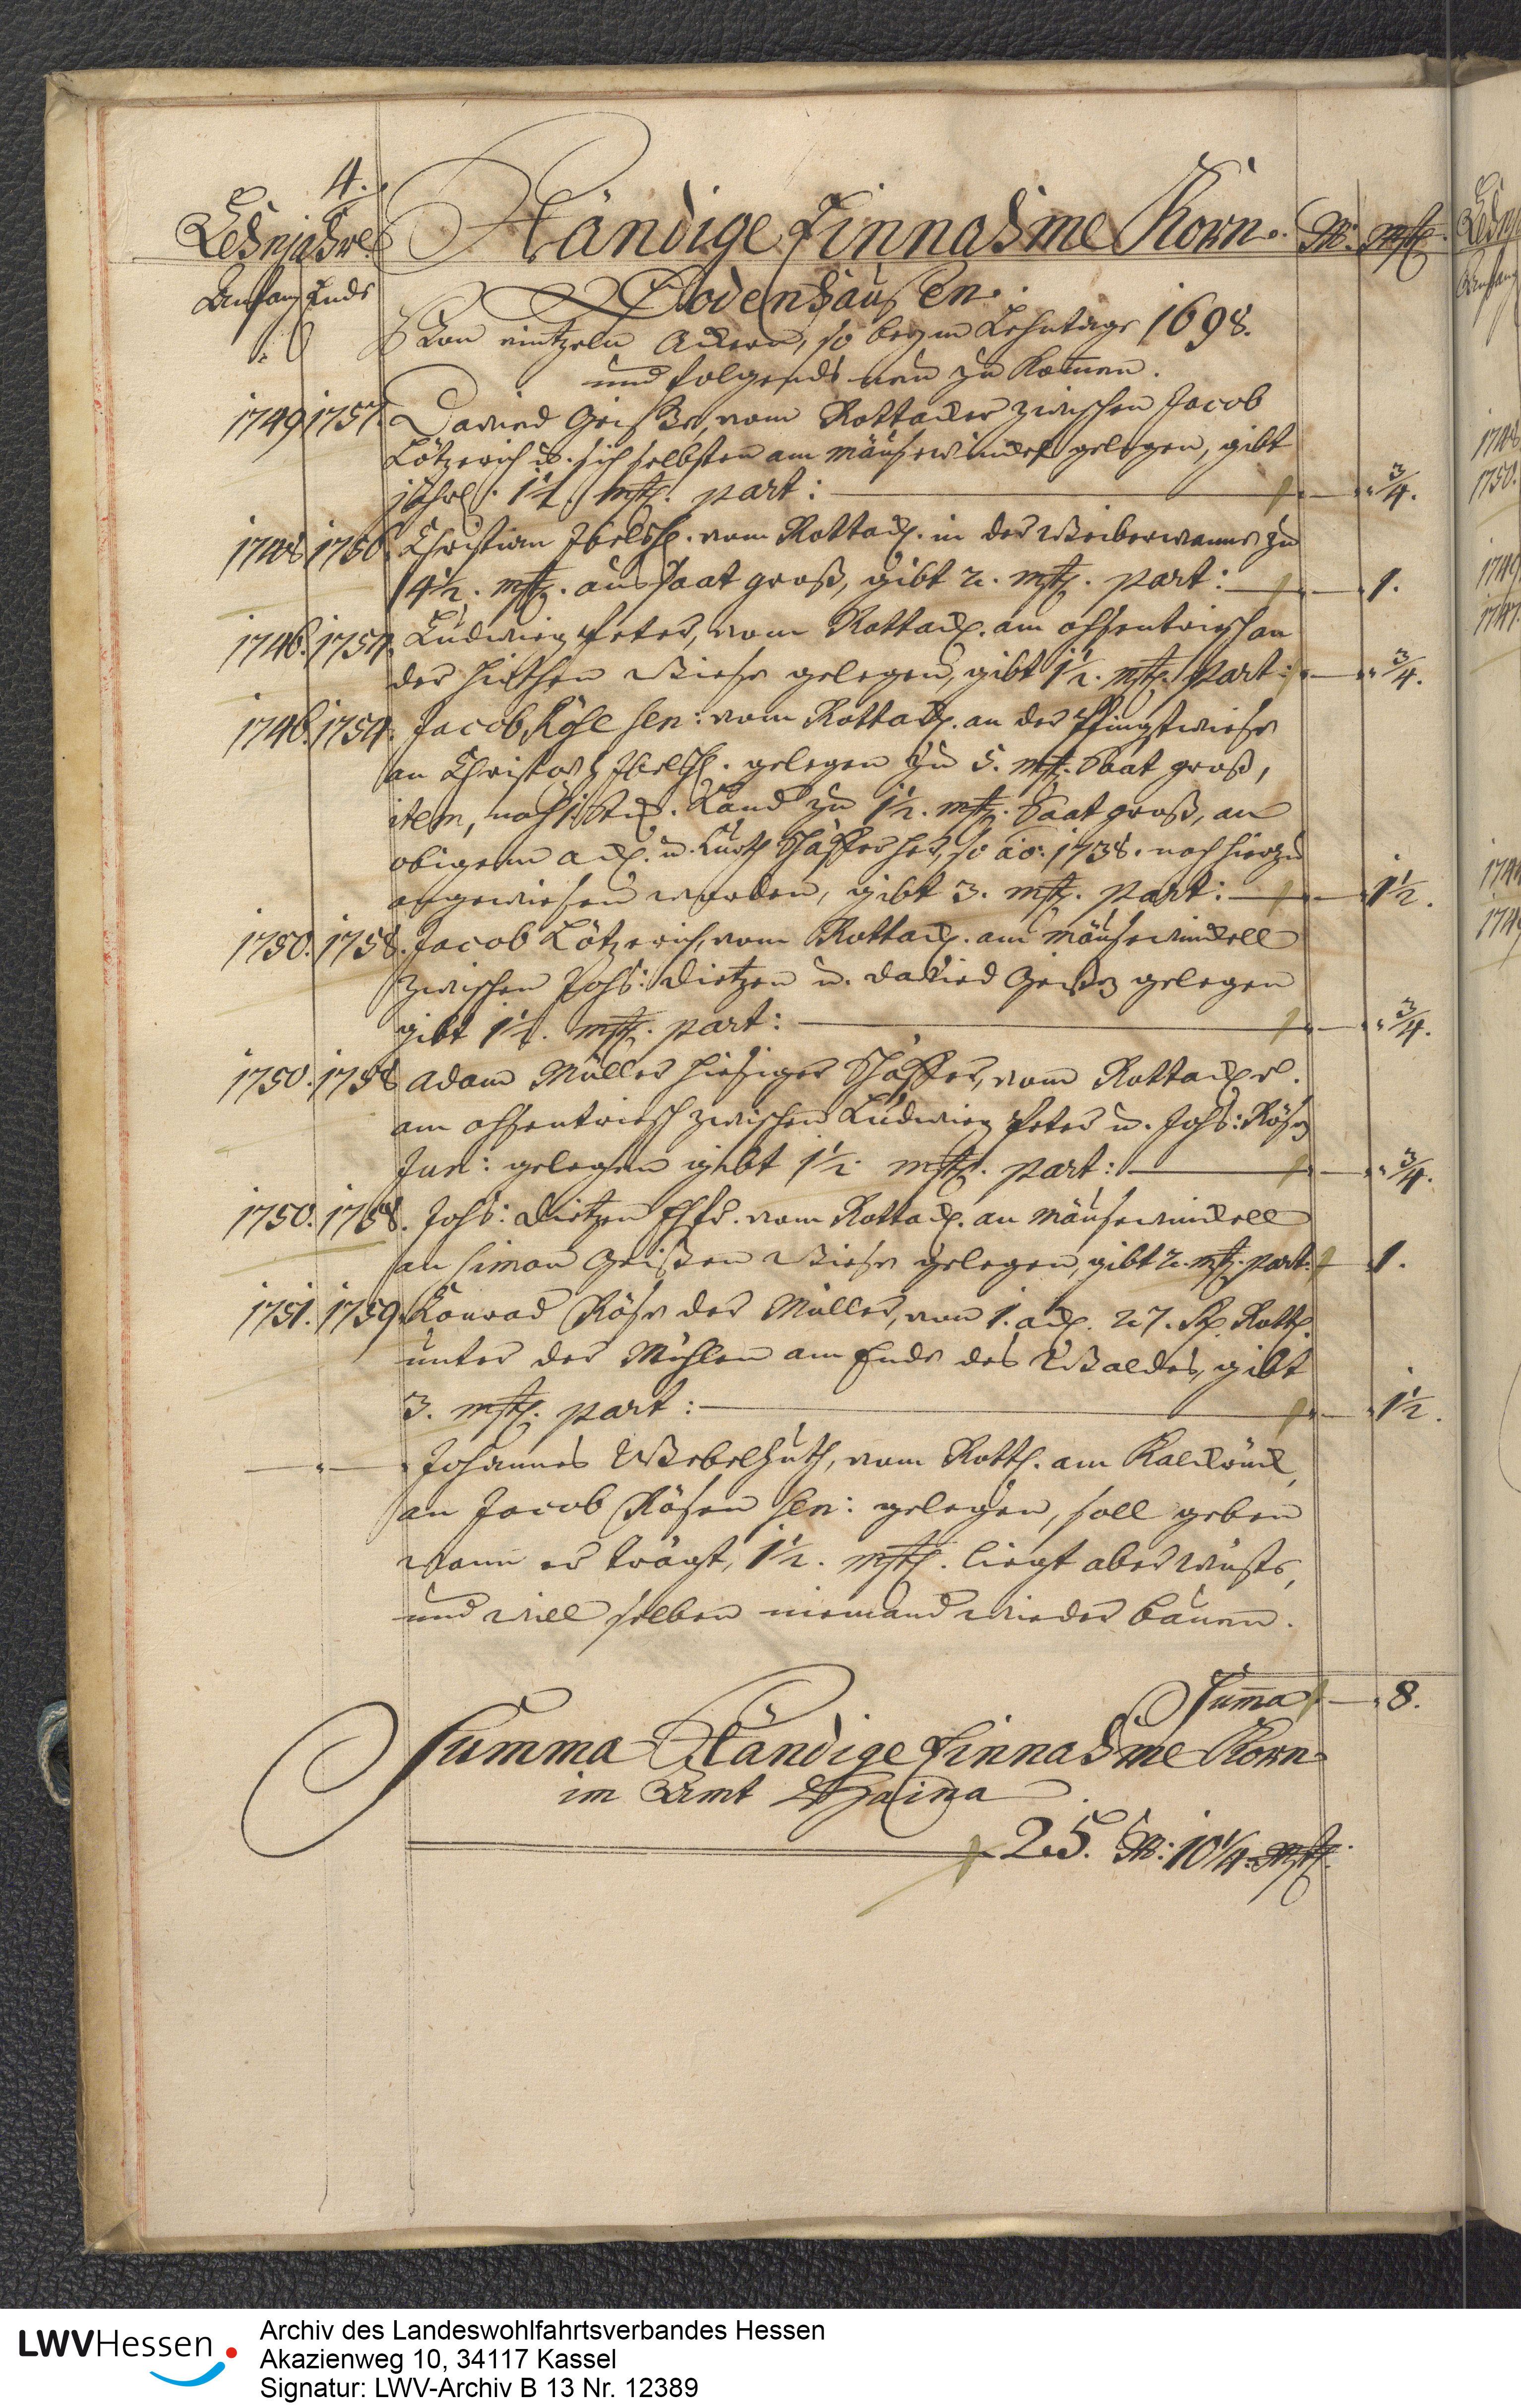 4.
Lehnjahre Ständige Einnahme Korn. M: mtz.
Anfang Ende Dodenhausen.
Von eintzeln Äckern, so beym Lehntage 1698.
und folgends neu zu kommen.
1749 1757. David Geiße, vom Rottacker zwischen Jacob
Lötzerich u. sich selbsten am Mäusewinckel gelegen, gibt
jährl. 1½. mtz. part: ¾.
1748 1756. Christian Ibelsh. vom Rottack. in der Weiberwanne zu
4½. mtz. aussaat groß, gibt 2. mtz. part: 1.
1746. 1754. Ludwig Peter, vom Rottack. am ohsentriesch an
der Hirthen Wiese gelegen, gibt 1½. mtz. part: ¾.
1746. 1754. Jacob Röse sen: vom Rottack. an der Pfingstwiese
an Christoph Ibelsh. gelegen zu 5. mtz. Saat groß,
item, noch 1. Stück. Land zu 1½. mtz. Saat groß, an
obigem ack. u. Curth Schäffer her, so ao: 1738. noch hierzu
angewiesen worden, gibt 3. mtz. part: 1½.
1750. 1758. Jacob Lötzerich, vom Rottack. am Mäusewinckell
zwischen Johs: Dietzen u. David Geißen gelegen
gibt 1½. mtz. part: ¾.
1750. 1758 Adam Müller hiesiger Schäffer, vom Rottacker.
am ohsentriesch zwischen Ludwig Peter u. Johs: Rösen
Jun: gelegen gibt 1½. mtz. part: ¾.
1750. 1758. Johs: Dietzen vom Rottack. an Mäusewinckell
an Simon Geißen Wiese gelegen, gibt 2. mtz. part: 1.
1751. 1759. Conrad Röse der Müller, von 1. ack. 27. Rotth.
unter der Mühlen am Ende des Waldes, gibt
3. mtz. part: 1½.
Johannes Webelhuth, vom Rotth. am
an Jacob Rösen sen: gelegen, soll geben
wann er trägt, 1½. mtz. liegt aber wüste,
und will selben niemand wieder bauen.
Summa 8.
Summa Ständige Einnahme Korn
im Amt Haina
25. M: 10¼. mtz.
LWVHessen
Archiv des Landeswohlfahrtsverbandes Hessen
Akazienweg 10, 34117 Kassel
Signatur: LWV-Archiv B 13 Nr. 12389